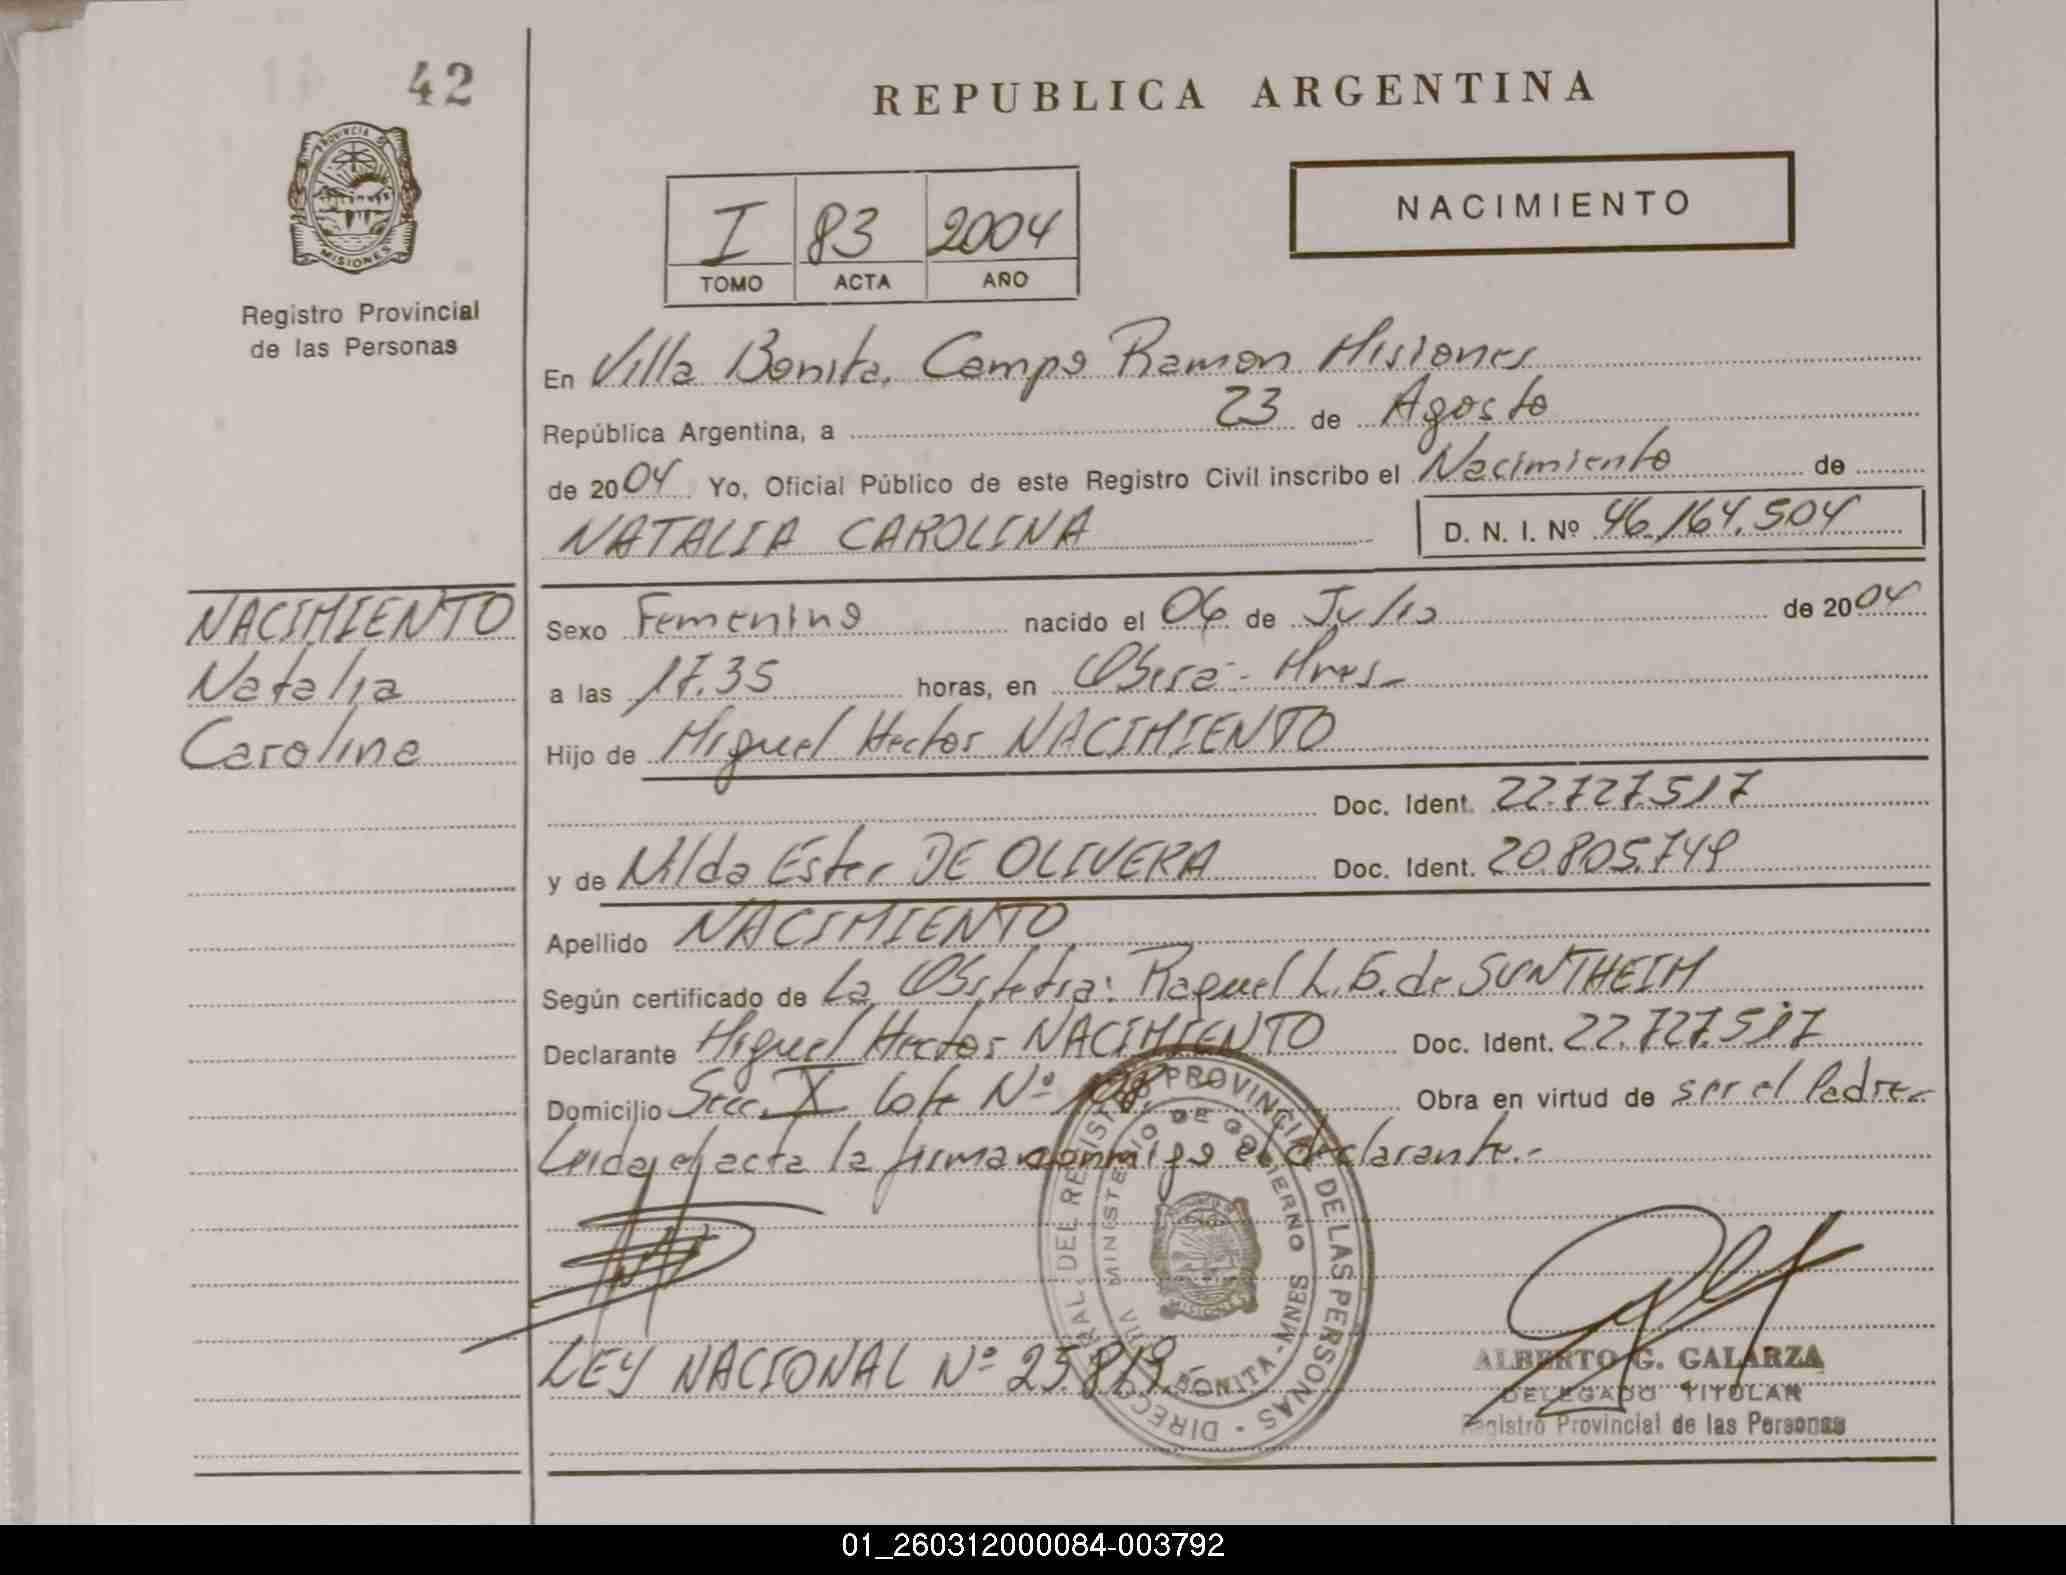 42
REPUBLICA ARGENTINA
PROVINCIA DE
MISIONES
Registro Provincial
de las Personas
NACIMIENTO
I 83 2004
TOMO ACTA AÑO
En Villa Bonita, Campo Ramon Misiones
República Argentina, a 23 de Agosto
de 2004 Yo, Oficial Público de este Registro Civil inscribo el Nacimiento de
NATALIA CAROLINA D. N. I. Nº 46.164.504
NACIMIENTO
Natalia
Carolina
Sexo Femenino nacido el 06 de Julio de 2004
a las 17.35 horas, en Oberá - Mnes.
Hijo de Miguel Hector NACIMIENTO
Doc. Ident. 22.727.517
y de Nilda Ester DE OLIVERA Doc. Ident. 20.805.749
Apellido NACIMIENTO
Según certificado de La Obstetra: Raquel L. G. de SUNTHEIM
Declarante Miguel Hector NACIMIENTO Doc. Ident. 22.727.517
Domicilio Secc. X Lote Nº 108. Obra en virtud de ser el Padre.-
Leida el acta la firma conmigo el declarante.-
DIRECC RAL DEL REGIS PROVINCIAL DE LAS PERSONAS
MINISTERIO DE GOBIERNO
BONITA-MNES
MISIONES
LEY NACIONAL Nº 25.819.-
ALBERTO G. GALARZA
DELEGADO TITULAR
Registro Provincial de las Personas
01_260312000084-003792